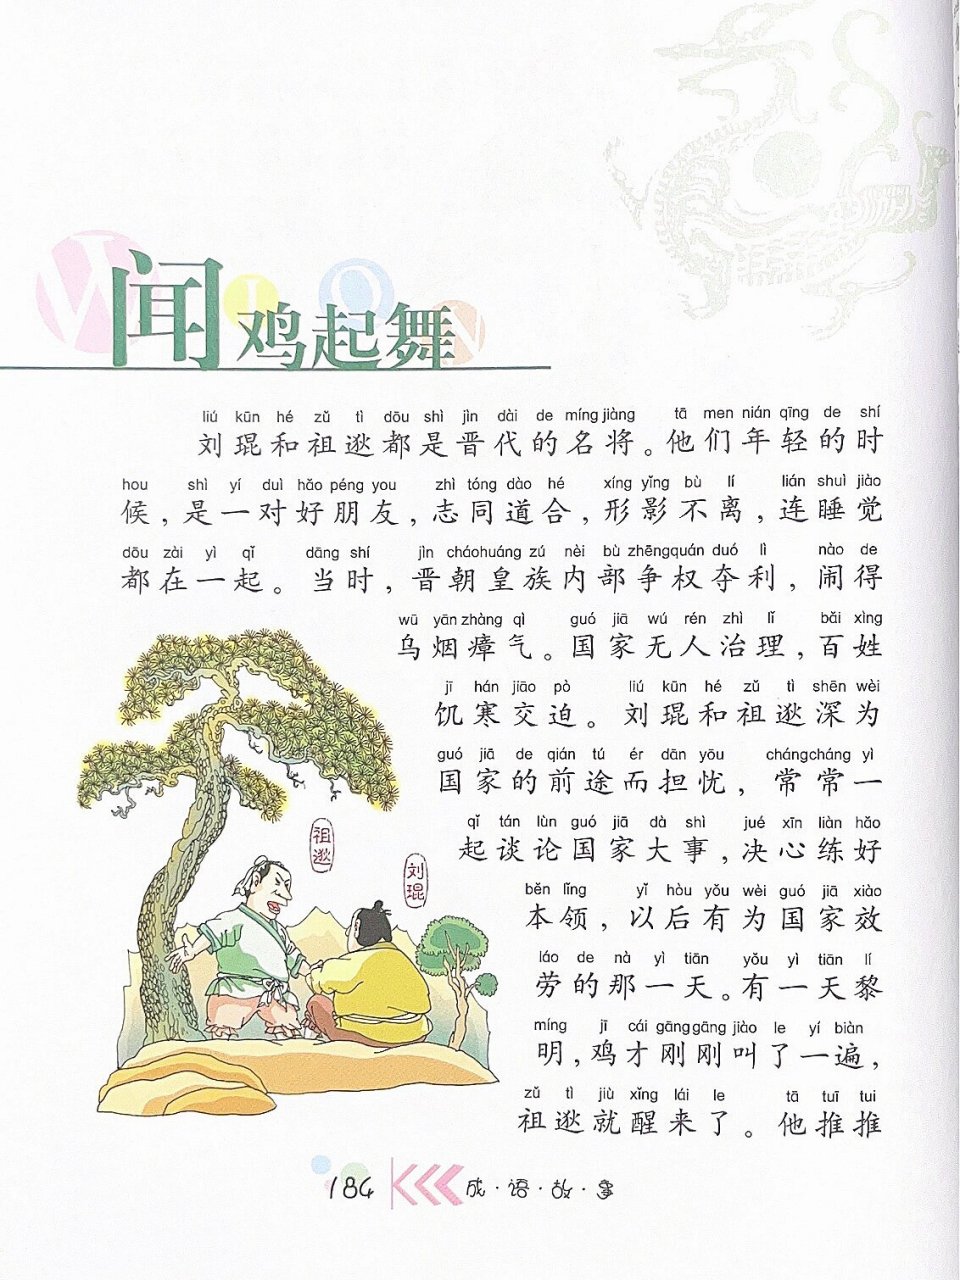 WION
闻鸡起舞
liú kūn hé zǔ tì dōu shì jìn dài de míng jiàng tā men nián qīng de shí
刘琨和祖逖都是晋代的名将。他们年轻的时
hou shì yí duì hǎo péng you zhì tóng dào hé xíng yǐng bù lí lián shuì jiào
候，是一对好朋友，志同道合，形影不离，连睡觉
dōu zài yì qǐ dāng shí jìn cháohuáng zú nèi bù zhēngquán duó lì nào de
都在一起。当时，晋朝皇族内部争权夺利，闹得
wū yān zhàng qì guó jiā wú rén zhì lǐ bǎi xìng
乌烟瘴气。国家无人治理，百姓
jī hán jiāo pò liú kūn hé zǔ tì shēn wèi
饥寒交迫。刘琨和祖逖深为
guó jiā de qián tú ér dān yōu chángcháng yì
国家的前途而担忧，常常一
qǐ tán lùn guó jiā dà shì jué xīn liàn hǎo
起谈论国家大事，决心练好
běn lǐng yǐ hòu yǒu wèi guó jiā xiào
本领，以后有为国家效
láo de nà yì tiān yǒu yì tiān lí
劳的那一天。有一天黎
míng jī cái gānggāng jiào le yí biàn
明，鸡才刚刚叫了一遍，
zǔ tì jiù xǐng lái le tā tuī tui
祖逖就醒来了。他推推
祖逖
刘琨
184 成·语·故·事